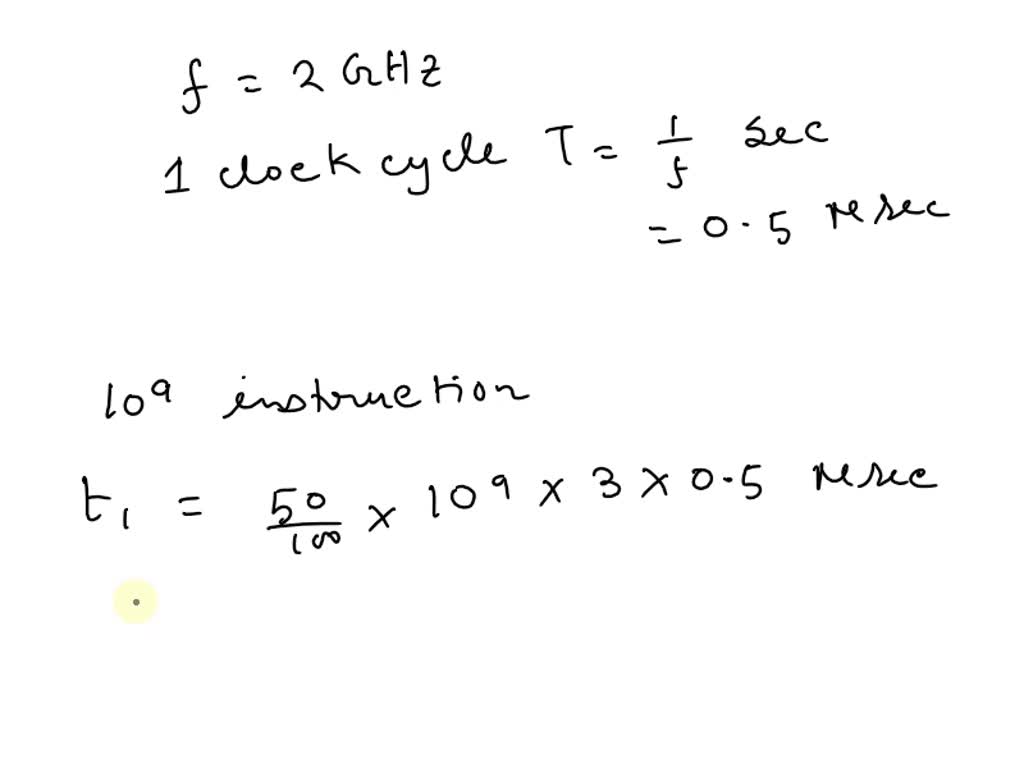 f = 2 GHz
1 clock cycle T = 1/f sec
= 0.5 nsec
10^9 instruction
t1 = 50/100 × 10^9 × 3 × 0.5 nsec